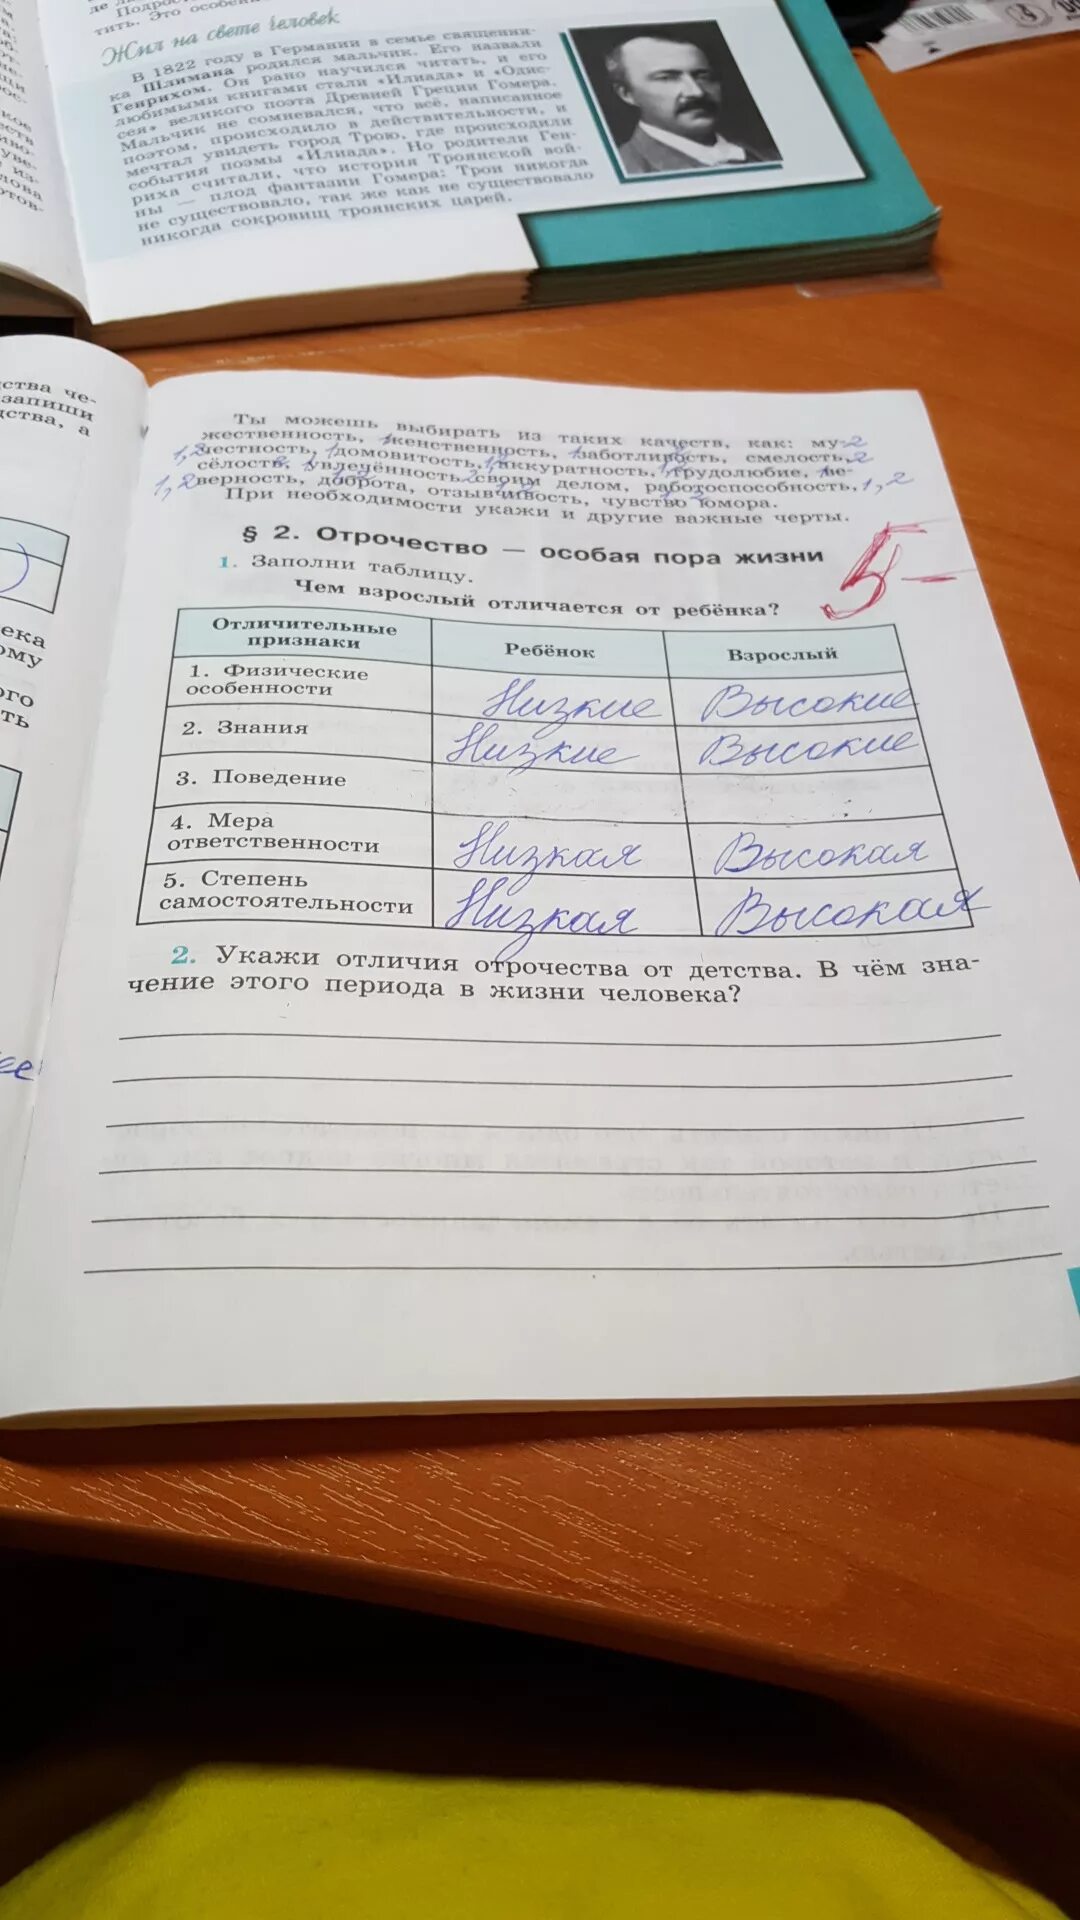 Подрос
тить. Это особен
Жил на свете человек
В 1822 году в Германии в семье священни-
ка Шлимана родился мальчик. Его назвали
Генрихом. Он рано научился читать, и его
любимыми книгами стали «Илиада» и «Одис-
сея» великого поэта Древней Греции Гомера.
Мальчик не сомневался, что всё, написанное
поэтом, происходило в действительности, и
мечтал увидеть город Трою, где происходили
события поэмы «Илиада». Но родители Ген-
риха считали, что история Троянской вой-
ны — плод фантазии Гомера: Трои никогда
не существовало, так же как не существовало
никогда сокровищ троянских царей.
ства че-
запиши
дства, а
Ты можешь выбирать из таких качеств, как: му-2
жественность, 1женственность, 1заботливость, смелость,2
1,2честность, 1домовитость, 1,2аккуратность, трудолюбие, ве-
сёлость, увлечённость своим делом, работоспособность, 1,2
1,2верность, доброта, отзывчивость, чувство юмора.
При необходимости укажи и другие важные черты.
§ 2. Отрочество — особая пора жизни
5-
1. Заполни таблицу.
Чем взрослый отличается от ребёнка?
Отличительные признаки Ребёнок Взрослый
1. Физические особенности Низкие Высокие
2. Знания Низкие Высокие
3. Поведение
4. Мера ответственности Низкая Высокая
5. Степень самостоятельности Низкая Высокая
2. Укажи отличия отрочества от детства. В чём зна-
чение этого периода в жизни человека?
века
ому
ого
ть
ее